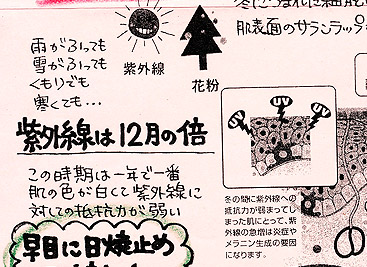 肌表面のサランラップ
雨がふっても
雪がふっても
くもりでも
寒くても…
紫外線
花粉
紫外線は12月の倍
この時期は一年で一番
肌の色が白くて紫外線に
対しての抵抗力が弱い
冬の間に紫外線への
抵抗力が弱まってし
まった肌にとって、紫
外線の急増は炎症や
メラニン生成の要因
になります。
早目に日焼止め